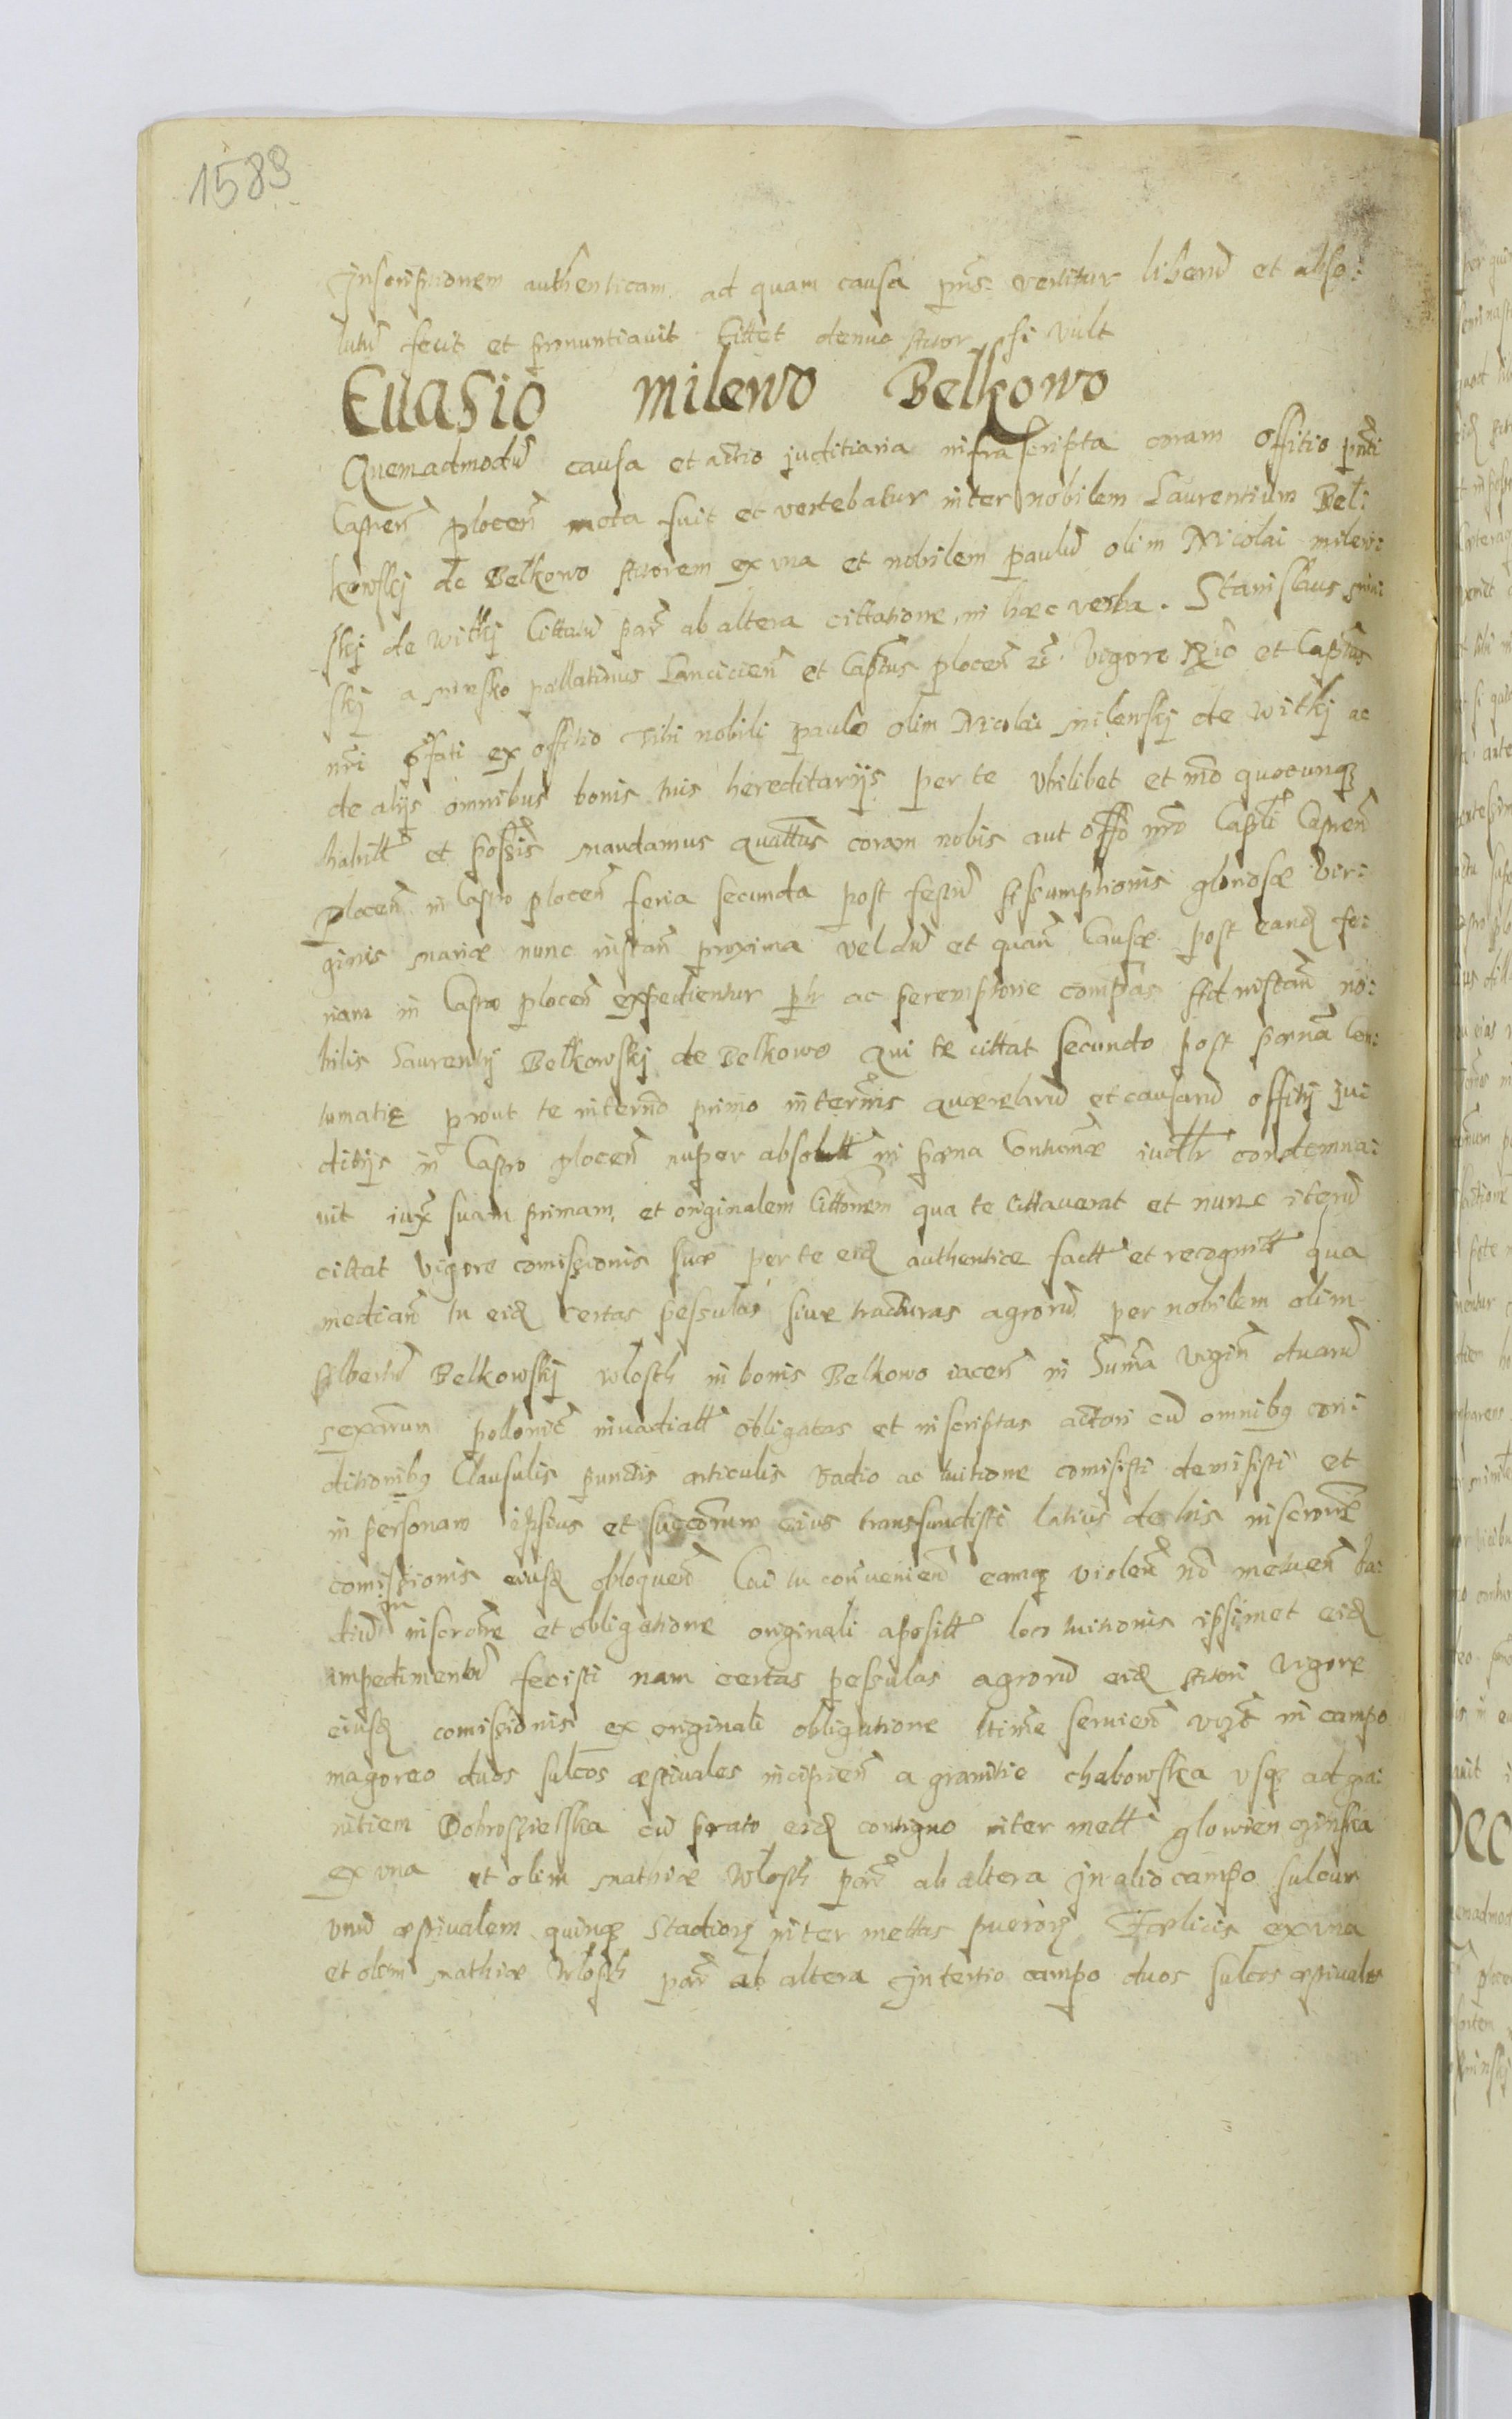 1583
Inscriptionem authenticam ad quam causa pñs vertitur liberũ et abso:
lutũ fecit et pronuntiavit Cittet denuo Actor si vult
Evasio Milewo Belkowo
Quemadmodũ causa et actio juditiaria infrascripta coram Offitio pñti
Capnẽ plocen̄ mota fuit et vertebatur inter nobilem Laurentium Bel:
kowskj de Belkowo Actorem ex vna et nobilem paulũ olim Nicolai milew:
skj de witkj Cittatũ par̃ ab altera cittatione in hæc verba. Stanislaus min:
skj a minsko pallatinus Lancicien̄ et Capt̃us plocen̄ zc̃ Vigore
nr̃i p̃fati ex offitio Tibi nobili paulo olim Nicolai milewskj de witkj ac
de alijs omnibus bonis tuis hereditarijs per te vbilibet et mõ quocunq;
habitt̃ et possis̃ mandamus quatt̃us coram nobis aut offõ nr̃o Captl̃i Capnẽ
plocen̄ in Castro plocen̄ feria secunda post festũ Assumptionis gloriosæ vir:
ginis mariæ nunc instan̄ proxima vel dũ et quan̄ Causæ post eand̃ fe:
riam in Castro plocen̄ expedientur ptr̃ ac peremptorie compãs Ad instan̄ no:
bilis Laurentij Belkowskj de Belkowo qui te cittat secundo post pœnã Con:
tumatiæ prout te in termõ primo in termĩs quærelarũ et causarũ offitij ju:
ditijs in Castro plocen̄ nuper absolutt̃ in pœna Contumæ judtr̃ condemna:
vit iux̃ suam primam et originalem Cittõnem qua te cittaverat et nunc iterũ
cittat vigore comissionis suæ per te eid̃ authentice factt̃ et recognitt̃ qua
median̄ tu eid̃ certas pessulas siue tracturas agrorũ per nobilem olim
Albertũ Belkowskj wlosth in bonis Belkowo iacen̄ in Summa vigin̄ duarũ
sexãrum pollonic̃ invadiatt̃ obligatas et inscriptas actori cũ omnibq con:
ditionibq Clausulis punctis articulis vadio ac tuitione comisisti demisisti et
in personam ipsius et succõrum eius transfundisti latius de his inscrõne
comissionis eiusd̃ obloquen̄ Cui tu contravenien̄ eamq; violen̄ nõ metuen̄ va:
diũ in inscrõne et obligatione originali apositt̃ loco tuitionis ipsimet eid̃
impedimentũ fecisti nam certas pessulas agrorũ eid̃ Actori vigore
eiusd̃ comissionis ex originali obligatione ltime servien̄ vizt̃ in campo
magoreo duos sulcos æstivales incipien̄ a granitie chabowska vsq; ad gra:
nitiem Dobrosielska cũ prato eid̃ contiguo inter mett̃ glowienczinska
ex vna et olim mathiæ wlosth par̃ ab altera In alio campo sulcum
vnũ æstivalem quinq; stadiorz inter mettas puerorz Fœlicis ex vna
et olim mathiæ wlosth par̃ ab altera In tertio campo duos sulcos æstivales